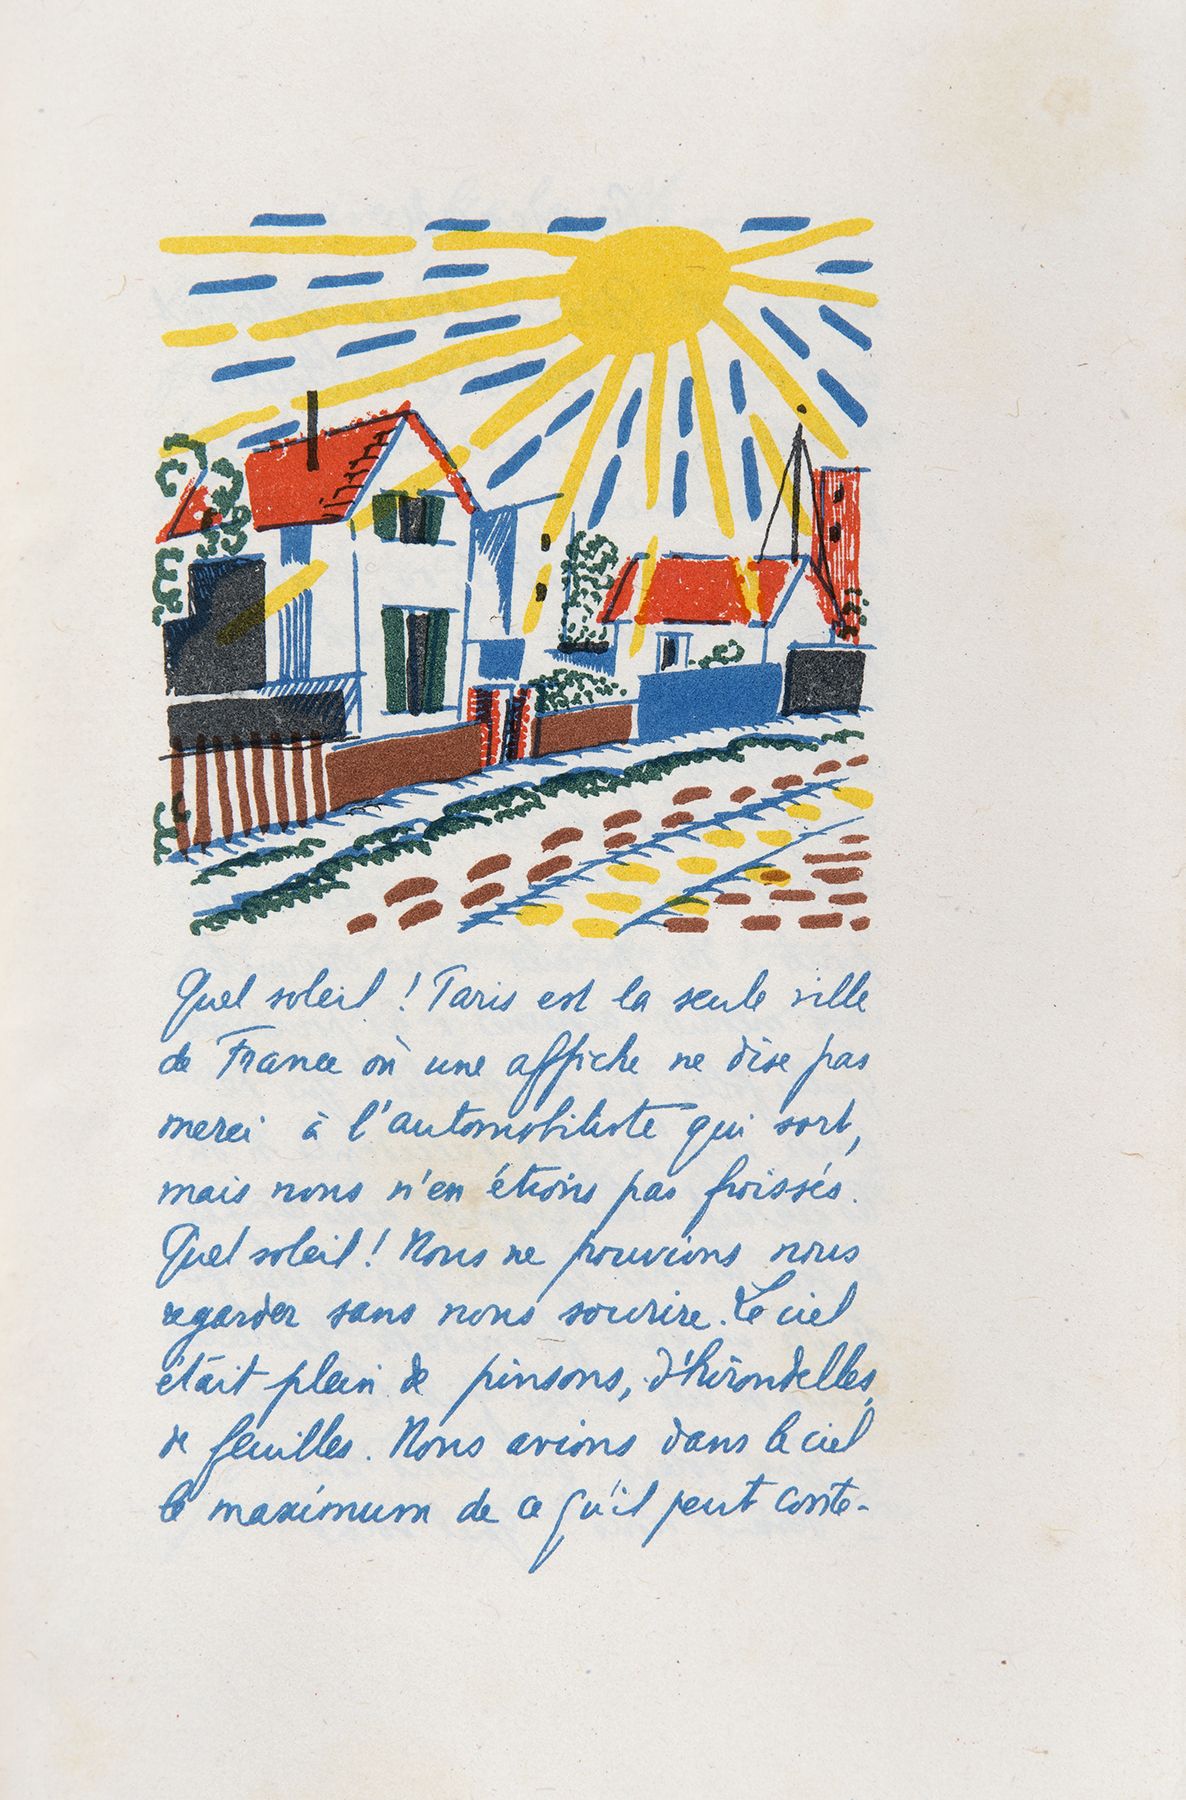 Quel soleil ! Paris est la seule ville
de France où une affiche ne dise pas
merci à l'automobiliste qui sort,
mais nous n'en étions pas froissés.
Quel soleil ! Nous ne pouvions nous
regarder sans nous sourire. Le ciel
était plein de pinsons, d'hirondelles,
de feuilles. Nous avions dans le ciel
le maximum de ce qu'il peut conte-